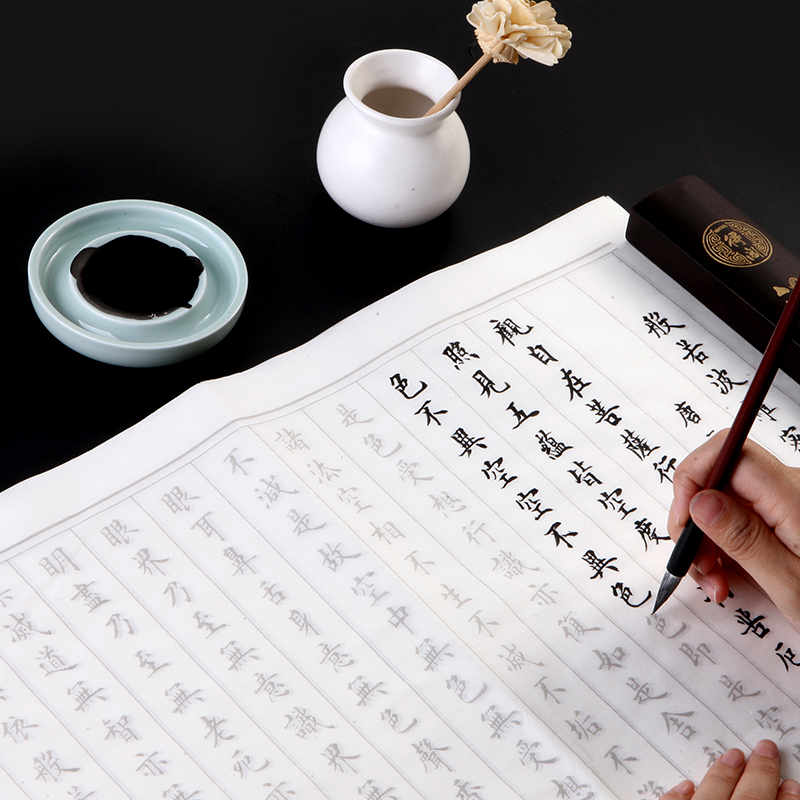 般若波
唐
觀自在菩薩行
照見五蘊皆空度苦厄
色不異空空不異色色即是空
是色受想行識亦復如是舍利
諸法空相不生不滅不垢不
不減是故空中無色無受想
眼耳鼻舌身意無色聲香
眼界乃至無意識界無
明盡乃至無老死亦
滅道無智亦無
依般若